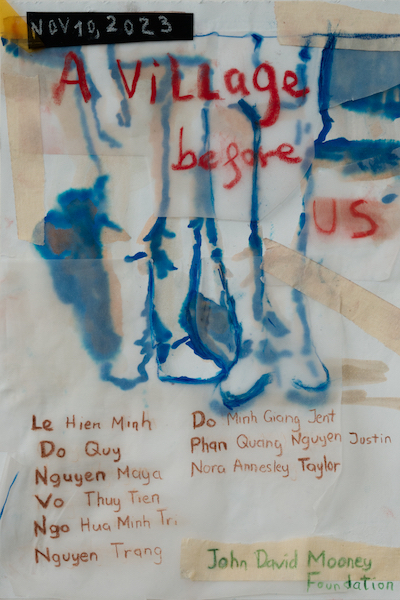 NOV 10, 2023
A ViLLage
before
US
Le Hien Minh
Do Quy
Nguyen Maya
Vo Thuy Tien
Ngo Hua Minh Tri
Nguyen Trang
Do Minh Giang Jent
Phan Quang Nguyen Justin
Nora Annesley Taylor
John David Mooney
Foundation